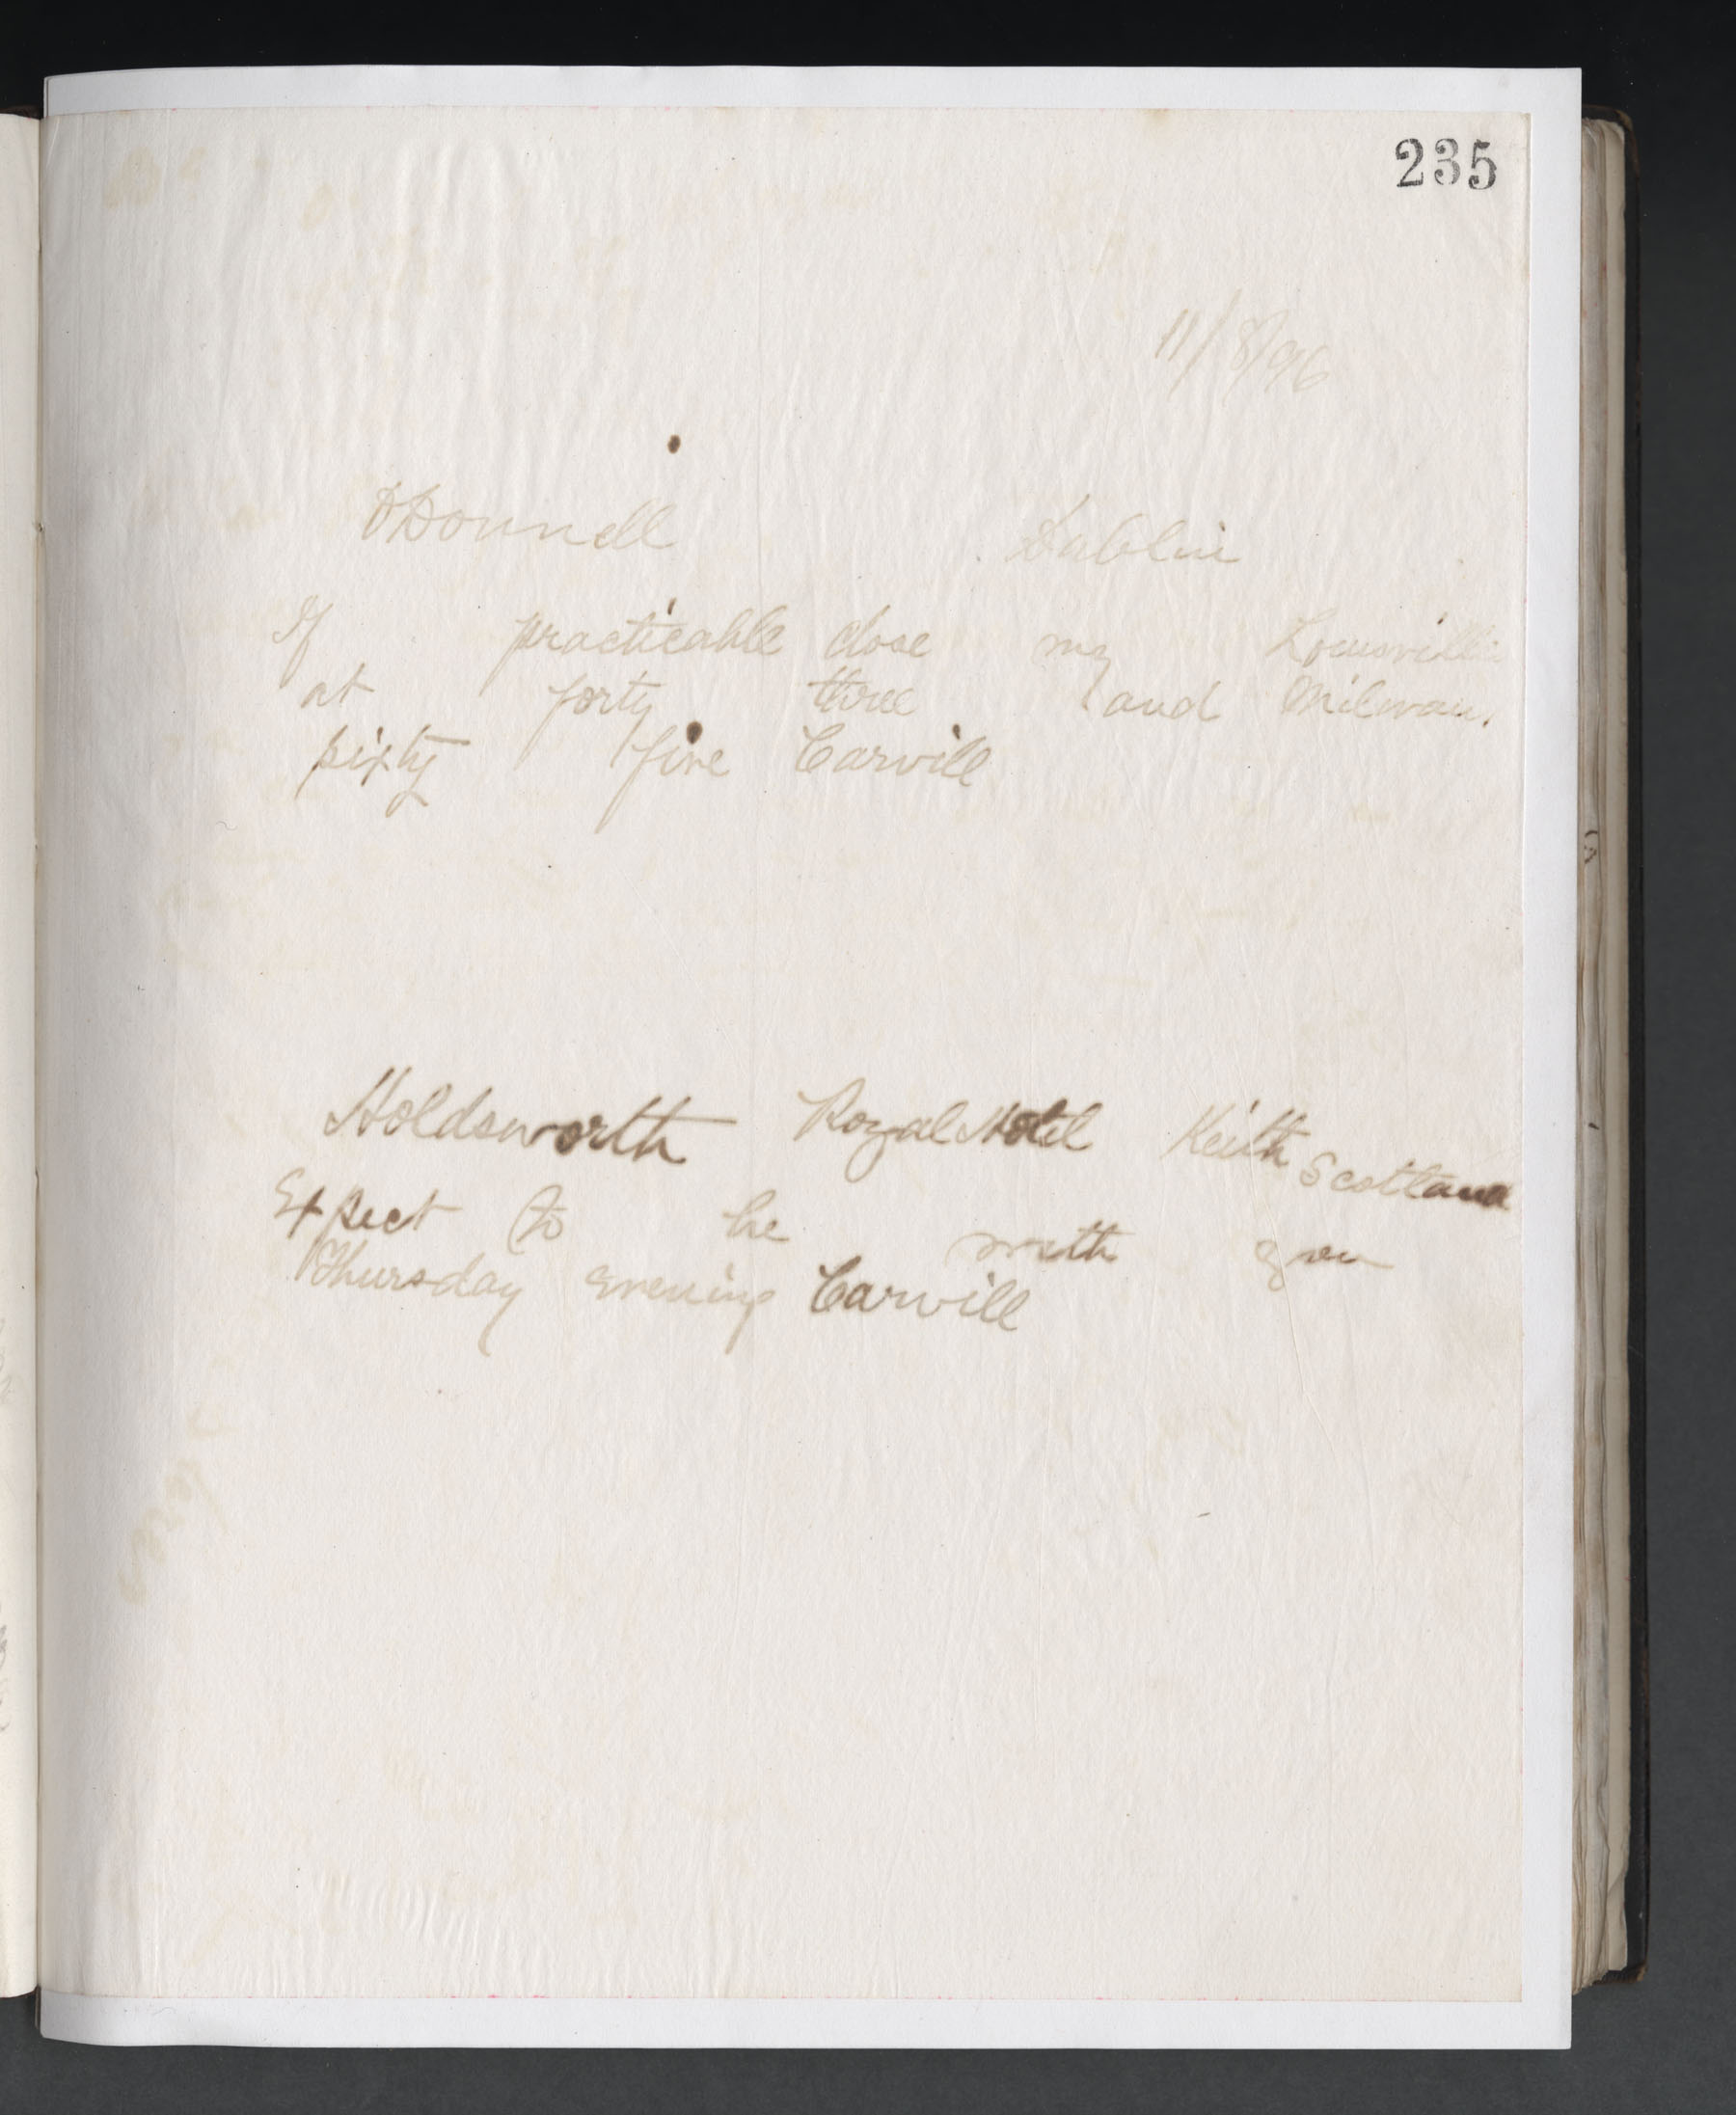 235
11/8/96
O'Donnell Dublin
If practicable close my Louisville
at forty three and Milwau.
sixty five Carvill
Holdsworth Royal Hotel Keith Scotland
Expect to be with you
Thursday evening Carvill